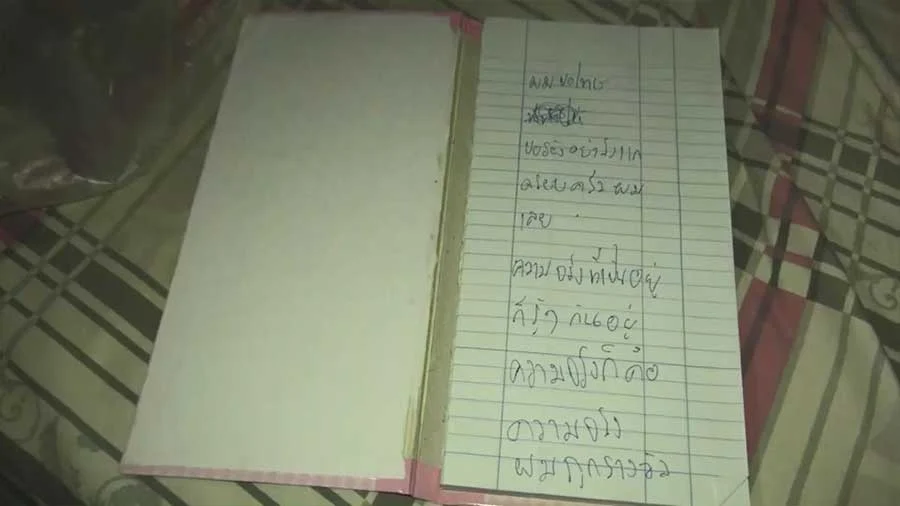 ผมขอโทษ
ขอร้องอย่ารังแก
ครอบครัวผม
เลย
ความจริงที่เป็นอยู่
ก็รู้ๆ กันอยู่
ความจริงก็คือ
ความจริง
ผมถูก